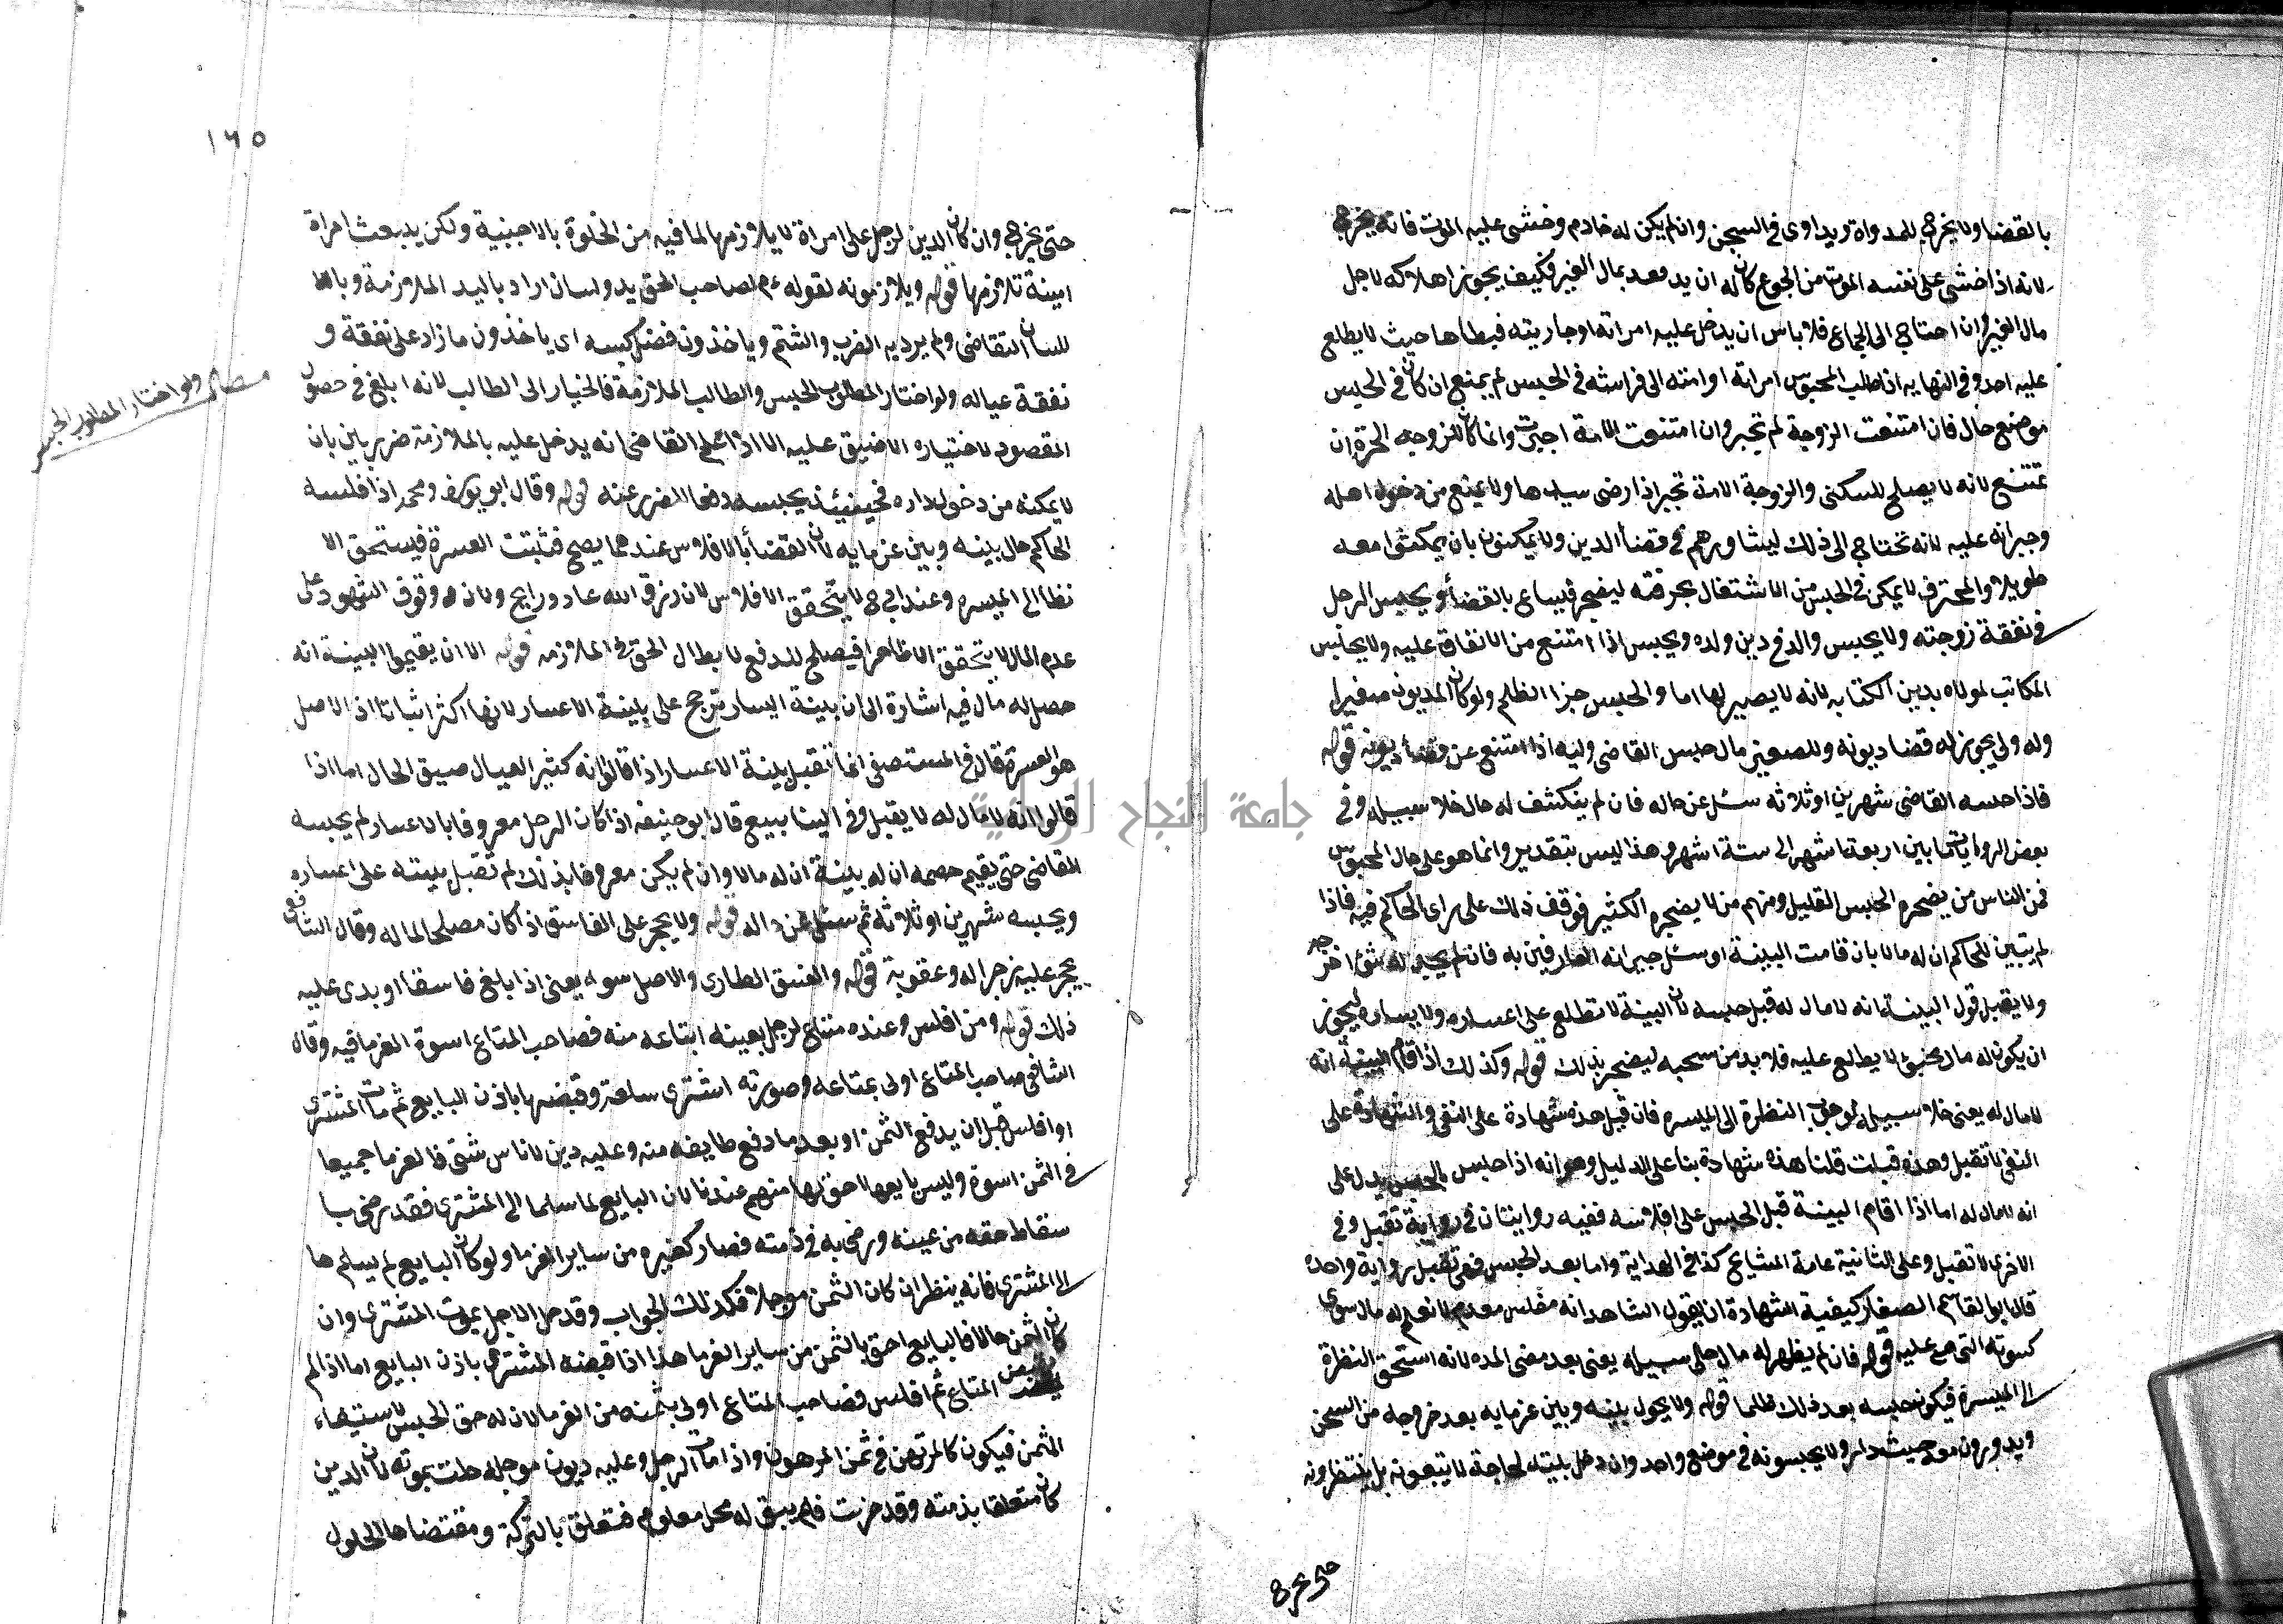 بالقضا ولا يخرج للمداواة ويداوى في السجن وان لم يكن له خادم وخشى عليه الموت فانه يخرج
لانه اذا خشى على نفسه الموت من الجوع كان له ان يدفعه بمال الغير فكيف يجوز اهلاكه لاجل
مال الغير وان احتاج الى الجماع فلا باس ان يدخل عليه امراته او جاريته فيطاها حيث لا يطلع
عليه احد وفي النهايه اذا طلب المحبوس امراته او امته الى فراشه في الحبس لم يمنع ان كان في الحبس
موضع خال فان امتنعت الزوجة لم تجبر وان امتنعت الامة اجبرت وانما كان للزوجة الحرة ان
تمتنع لانه لا يصلح للسكنى والزوجة الامة تجبر اذا رضى سيدها ولا يمنع من دخول اهله
وجيرانه عليه لانه تحتاج الى ذلك ليشاورهم في قضأ الدين ولا يمكنون بان يمكثوا معه
طويلا والمحترف لا يمكن في الحبس من الاشتغال بحرفته ليضجر فيسارع بالقضأ ويحبس الرجل
في نفقة زوجته ولا يحبس والد في دين ولده ويحبس اذا امتنع من الانفاق عليه ولا يحبس
المكاتب لمولاه بدين الكتابه لانه لا يصير لها اما والحبس جزا الظلم ولو كان المديون صغيرا
وله ولى يجوز له قضا ديونه وللصغير مال حبس القاضى وليه اذا امتنع عن قضأ ديونه قوله
فاذا حبسه القاضى شهرين او ثلاثه سئل عن حاله فان لم ينكشف له حال خلا سبيله وفي
بعض الروايات ما بين اربعة اشهر الى ستة اشهر وهذا ليس بتقدير وانما هو على حال المحبوس
فمن الناس من يضجره الحبس القليل ومنهم من لا يضجره الكثير فوقف ذلك على راى الحاكم فيه فاذا
لم يتبين للحاكم ان له مالا بان قامت البينة او سئل جيرانه العارفين به فان لم يجد له شئ اخرجه
ولا يقبل قول البينة انه لا مال له قبل حبسه لان البينة لا تطلع على اعساره ولا يساره ليجوز
ان يكون له مال مخبئ لا يطلع عليه فلا بد من سجنه ليضجر بذلك قوله وكذلك اذا اقام البينة انه
لا مال له يعنى خلا سبيله لوجوب النظرة الى الميسره فان قيل هذه شهادة على النفى والشهادة على
النفى لا تقبل وهذه قبلت قلنا هذه شهادة بنا على الدليل وهو انه اذا حبس بالحبس يدل على
انه لا مال له اما اذا اقام البينة قبل الحبس على افلاسه ففيه روايتان في رواية تقبل وفي
الاخرى لا تقبل وعلى الثانية عامة المشايخ كذا في الهداية واما بعد الحبس فهى تقبل رواية واحده
قال ابو القاسم الصفار كيفية الشهادة ان يقول الشاهد انه مفلس معدم لا نعلم له مال سوى
كسوته التى عليه قوله فان لم يظهر له مال خلى سبيله يعنى بعد مضى المده لانه استحق النظرة
الى الميسرة فيكون حبسه بعد ذلك ظلما قوله ولا يحول بينه وبين غرمايه بعد خروجه من السجن
ويدورون معه حيث دار ولا يحبسونه في موضع واحد وان دخل بيته لحاجة لا يتبعونه بل ينتظرونه
حتى يخرج
١٦٥
حتى يخرج وان كان الدين لرجل على امراة لا يلازمها لما فيه من الخلوة بالاجنبية ولكن يبعث امراة
امينة تلازمها قوله ويلازمونه لقوله عم لصاحب الحق يد ولسان اراد باليد الملازمة وبا
للسان التقاضى ولم يرد به الضرب والشتم وياخذون فضل كسبه اى ياخذون ما زاد على نفقة و
نفقة عياله ولو اختار المطلوب الحبس والطالب الملازمة فالخيار الى الطالب لانه ابلغ في حصول
المقصود لاختياره الاضيق عليه الا اذا علم القاضى انه يدخل عليه بالملازمة ضرر بين بان
لا يمكنه من دخول داره فحينئذ يحبسه دفعا للضرر عنه قوله وقال ابو يوسف ومحمد اذا فلسه
الحاكم حال بينه وبين غرمايه لان القضأ بالافلاس عندهما يصح فثبتت العسرة فيستحق الا
نظا الى الميسره وعند ابى ح لا يتحقق الافلاس لان رزق الله غاد ورايح ولان وقوف الشهود على
عدم المال لا يتحقق الا ظاهرا فيصلح للدفع لا بطال الحق في الملازمه قوله الا ان يقيموا البينة انه
حصل له مال فيه اشارة الى ان بينة اليسار ترجح على بينة الاعسار لانها اكثر اثباتا اذ الاصل
هو العسرة قال في المستصفى انما تقبل بينة الاعسار اذا قالوا انه كثير العيال ضيق الحال اما اذا
قالوا انه لا مال له لا يقبل وفي الينابيع قال ابو حنيفه اذا كان الرجل معروفا بالاعسار لم يحبسه
القاضى حتى يقيم خصمه ان له بينة ان له مالا وان لم يكن معروفا بذلك لم تقبل بينته على اعساره
ويحبسه شهرين او ثلاثه ثم سئل عن حاله قوله ولا يحجر على الفاسق اذا كان مصلحا لماله وقال الشافعى
يحجر عليه زجرا له وعقوبة قوله والفسق الطارى والاصل سوا يعنى اذا بلغ فاسقا او بدى عليه
ذلك قوله ومن افلس وعنده متاع لرجل بعينه ابتاعه منه فصاحب المتاع اسوة الغرما فيه وقال
الشافعى صاحب المتاع اولى بمتاعه وصورته اشترى سلعة وقبضها باذن البايع ثم مات المشترى
او افلس قبل ان يدفع الثمن او بعد ما دفع طايفه منه وعليه دين لاناس شتى فالغرما جميعا
في الثمن اسوة وليس بايعها احق بها منهم عندنا لان البايع لما سلمها الى المشترى فقد رضى با
سقاط حقه من عينه ورضى به في ذمته فصار كغيره من ساير الغرما ولو كان البايع لم يسلمها
الى المشترى فانه ينظر ان كان الثمن موجلا فكذلك الجواب وقد حل الاجل بموت المشترى وان
كان الثمن حالا فالبايع احق بالثمن من ساير الغرما هذا اذا قبضه المشترى باذن البايع اما اذا لم
يقبض المتاع ثم افلس فصاحب المتاع اولى بثمنه من الغرما لان له حق الحبس لاستيفاء
الثمن فيكون كالمرتهن في ثمن المرهون واذا مات الرجل وعليه ديون موجله حلت بموته لان الدين
كان متعلقا بذمته وقد خربت فلم يبق له محل معلوم فتعلق بالتركة ومقتضاها الحلول
ولو اختار المطلوب الحبس
جامعة النجاح الوطنية